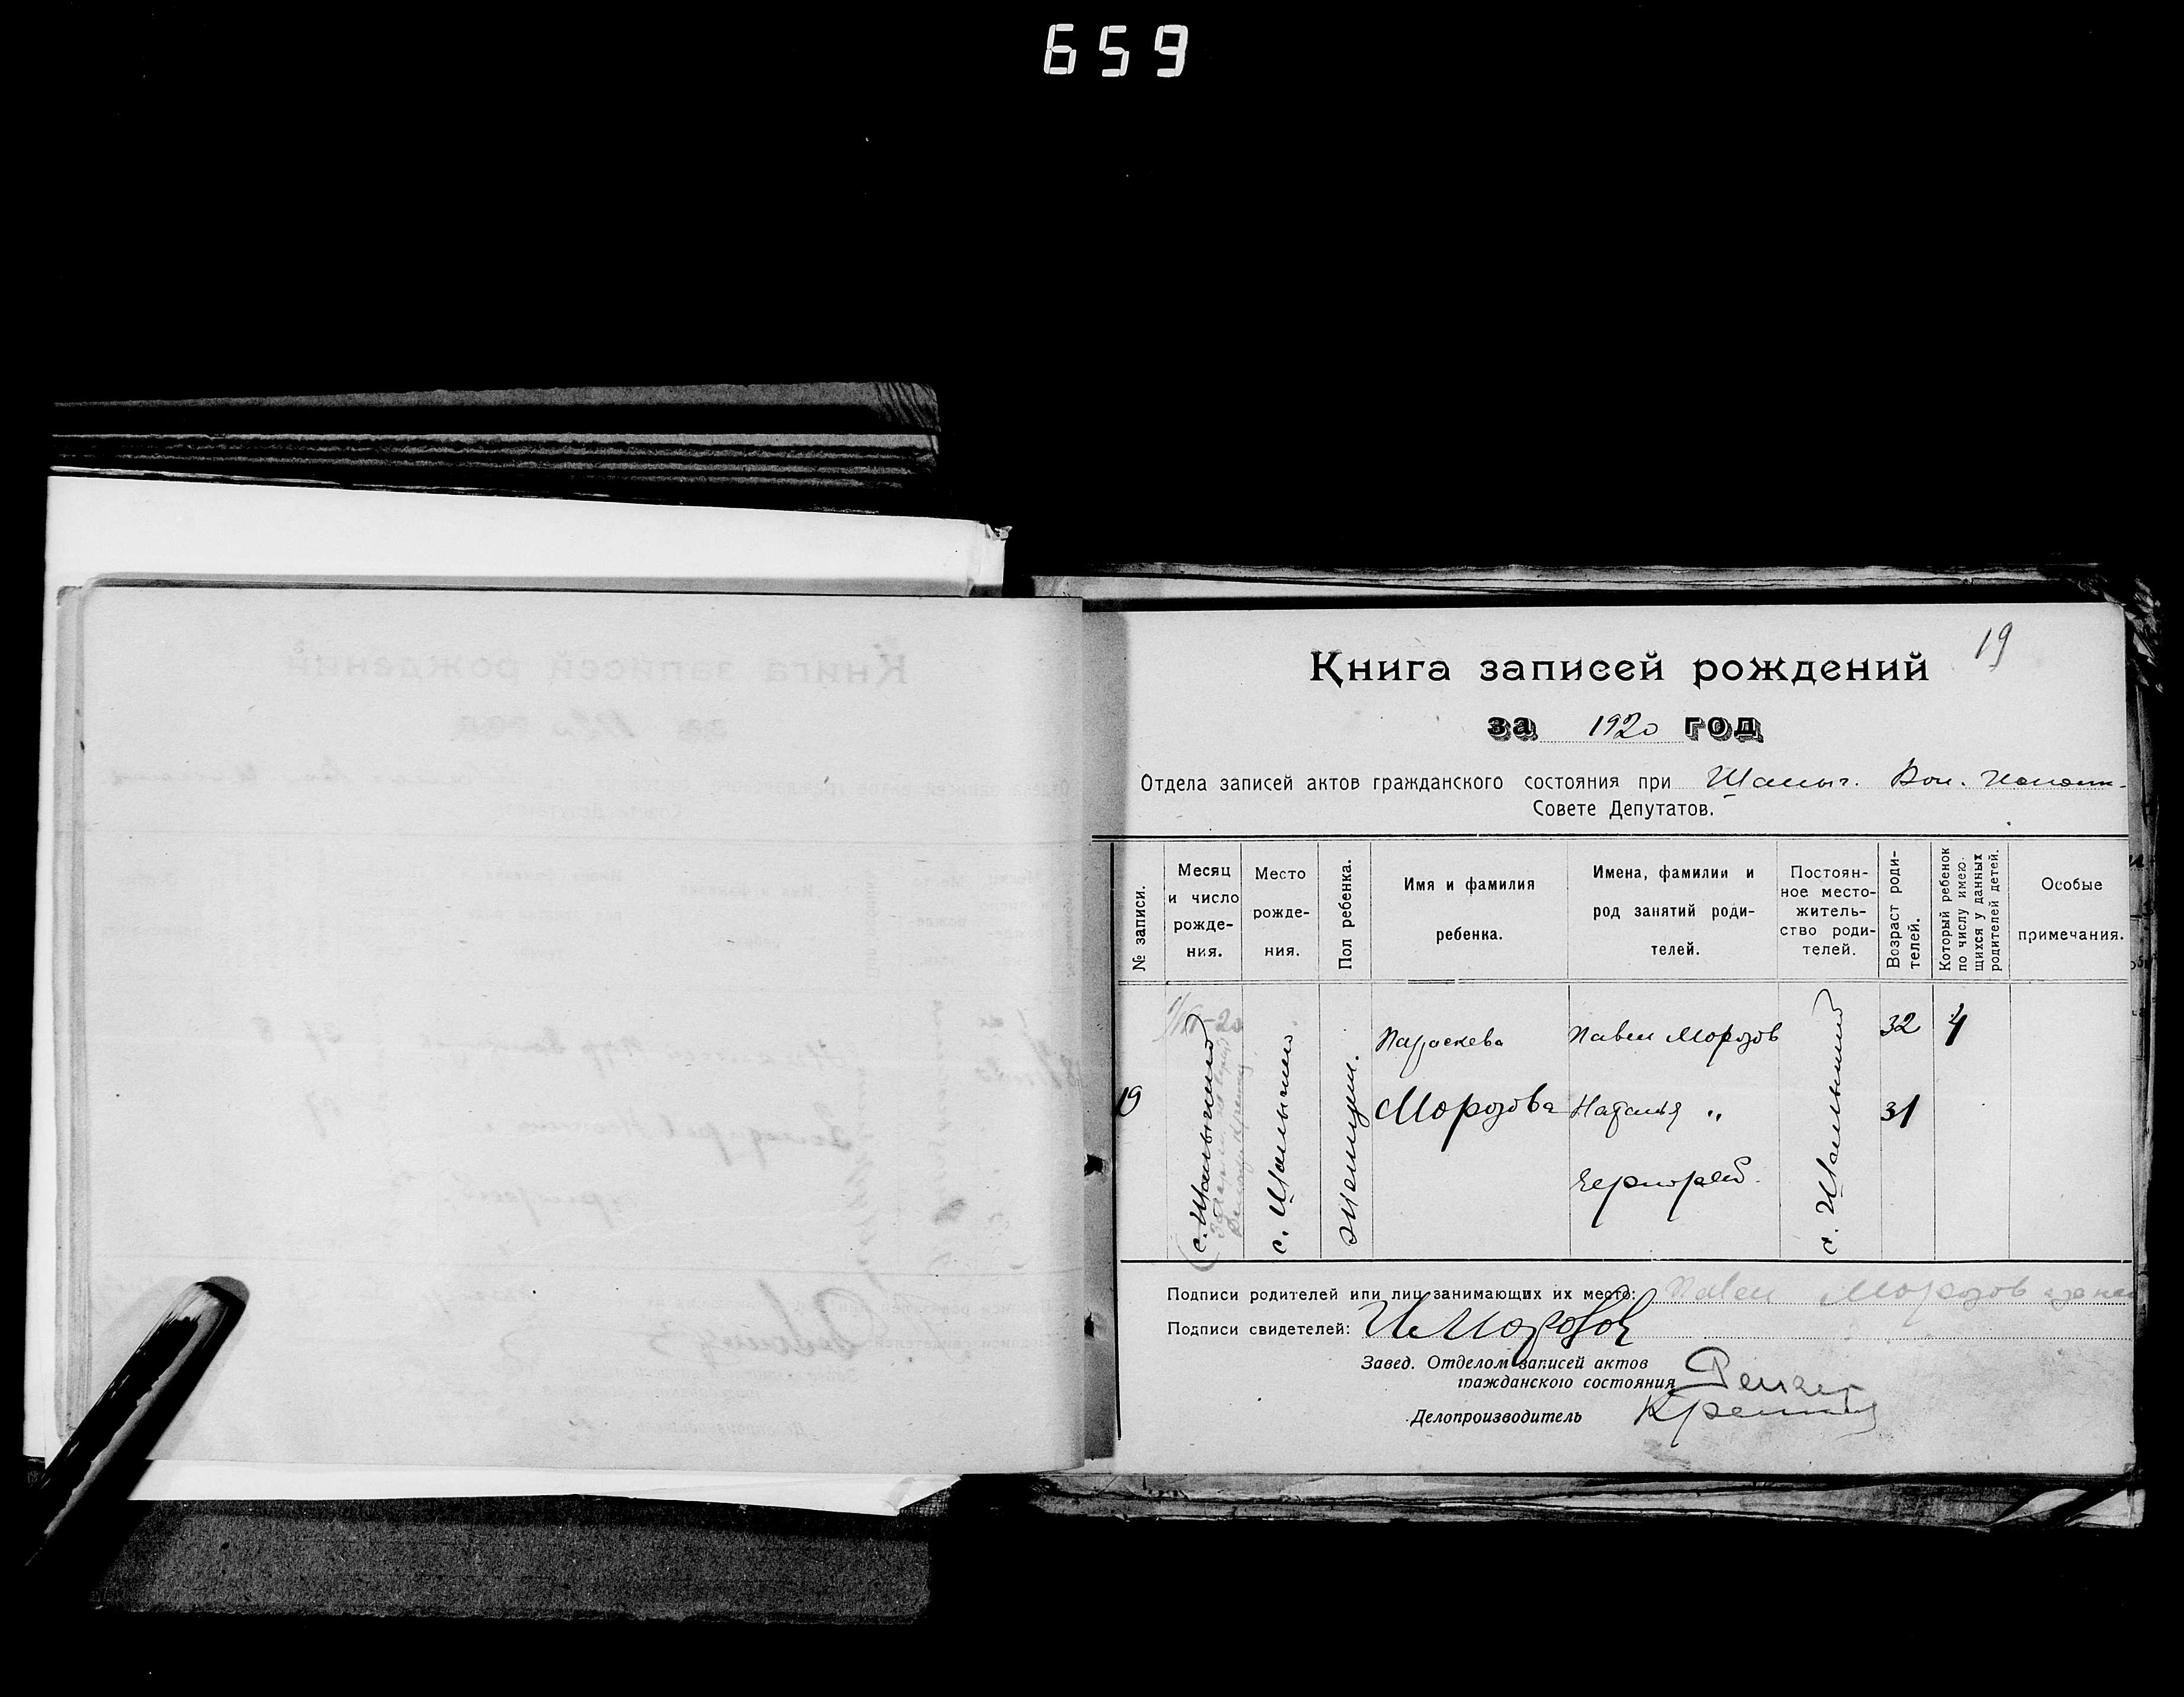 659
19
Книга записей рождений
за 1920 год
Отдела записей актов гражданского состояния при Шалыг. Вол. Исполн.
Совете Депутатов.
№ записи.
Месяц и число рожде- ния.
Место рожде- ния.
Пол ребенка.
Имя и фамилия ребенка.
Имена, фамилии и род занятий роди- телей.
Постоян- ное место- житель- ство роди- телей.
Возраст роди- телей.
Который ребенок по числу имею- щихся у данных родителей детей.
Особые примечания.
19
с. Шалыгино
с. Шалыгино
Параскева
Морозова
Павел Морозов
Наталья "
с. Шалыгино
32
31
4
Подписи родителей или лиц занимающих их место: Павел Морозов
Подписи свидетелей: И Морозов
Завед. Отделом записей актов
гражданского состояния
Делопроизводитель